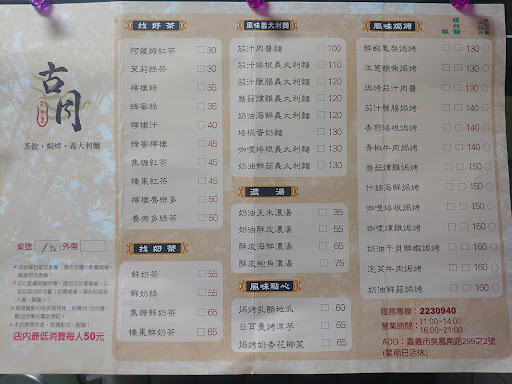 古月
茶飲‧焗烤‧義大利麵
桌號
外帶
店內最低消費每人50元
找好茶
阿薩姆紅茶 □30
茉莉綠茶 □30
檸檬綠 □35
蜂蜜綠 □35
檸檬汁 □40
蜂蜜檸檬 □45
焦糖紅茶 □45
榛果紅茶 □45
檸檬養樂多 □50
養樂多綠茶 □50
找奶茶
鮮奶茶 □55
鮮奶綠 □55
焦糖鮮奶茶 □65
榛果鮮奶茶 □65
風味義大利麵
茄汁肉醬麵 □□100
茄汁培根義大利麵 □□110
茄汁臘腸義大利麵 □□120
蘑菇燻雞義大利麵 □□120
奶油海鮮義大利麵 □□120
培根蕾奶麵 □□120
咖哩培根義大利麵 □□130
奶油鮮菇義大利麵 □□130
濃湯
奶油玉米濃湯 □□35
奶油酥皮濃湯 □□55
酥皮海鮮濃湯 □□65
酥皮鮑魚濃湯 □□75
風味點心
焗烤乳酪地瓜 □60
日耳曼烤洋芋 □65
焗烤奶香花椰菜 □65
風味焗烤
鮮蝦鳳梨焗烤 □□130○
洋蔥鮪魚焗烤 □□130○
焗烤茄汁肉醬 □□130○
茄汁臘腸焗烤 □□140○
香煎培根焗烤 □□140○
青椒牛肉焗烤 □□140○
蘑菇燻雞焗烤 □□150○
什錦海鮮焗烤 □□150○
咖哩培根焗烤 □□150○
咖哩燻雞焗烤 □□150○
奶油干貝鮮蝦焗烤 □□160○
泡菜牛肉焗烤 □□160○
奶油鮮菇焗烤 □□160○
服務專線：2230940
營業時間：11:00~14:00
16:00~21:00
ADD：嘉義市吳鳳南路299之2號
(星期日店休)